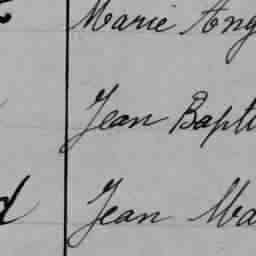 Marie Ang
Jean Bapti
Jean Ma